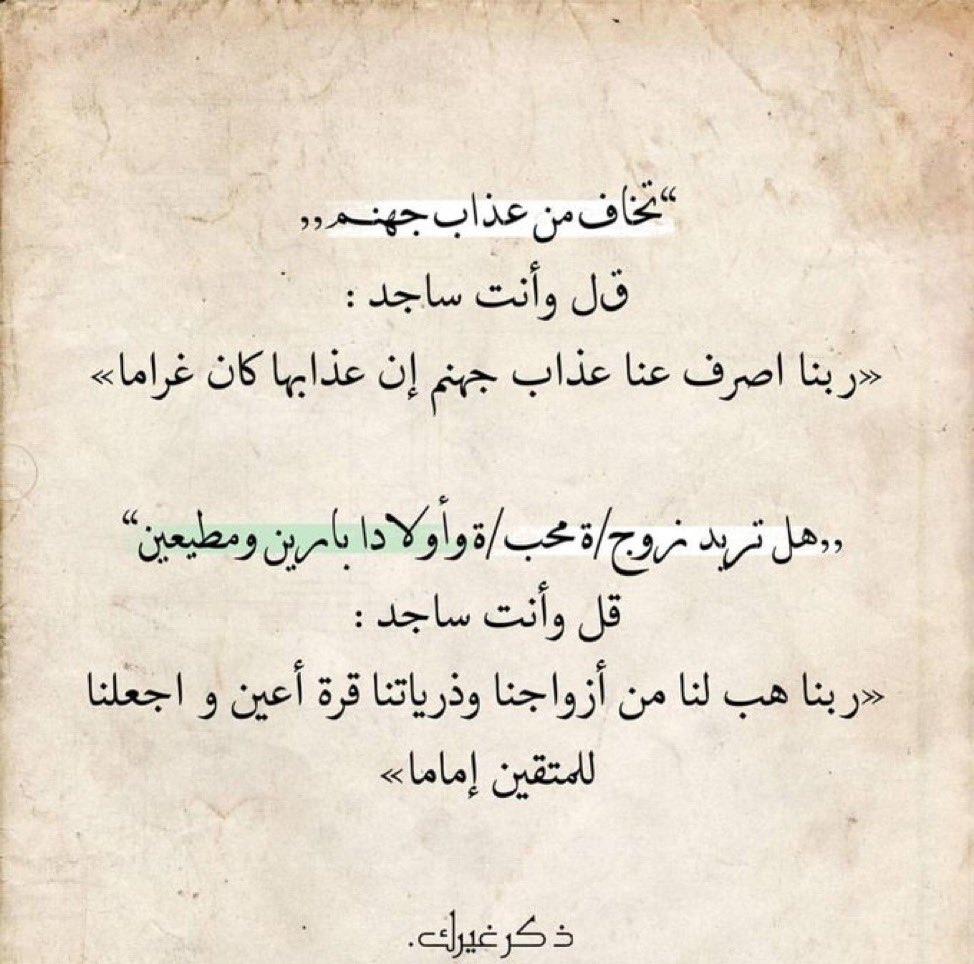 “تخاف من عذاب جهنم,,
قل وأنت ساجد :
«ربنا اصرف عنا عذاب جهنم إن عذابها كان غراما»
,,هل تريد زوج/ة محب/ة وأولادا بارين ومطيعين“
قل وأنت ساجد :
«ربنا هب لنا من أزواجنا وذرياتنا قرة أعين و اجعلنا
للمتقين إماما»
ذكر غيرك.